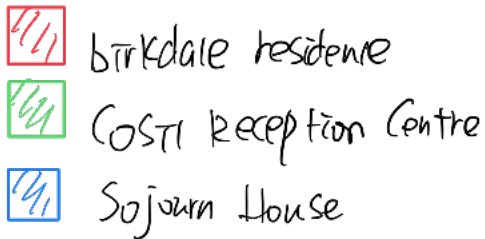 birkdale residence
COSTI Reception Centre
Sojourn House